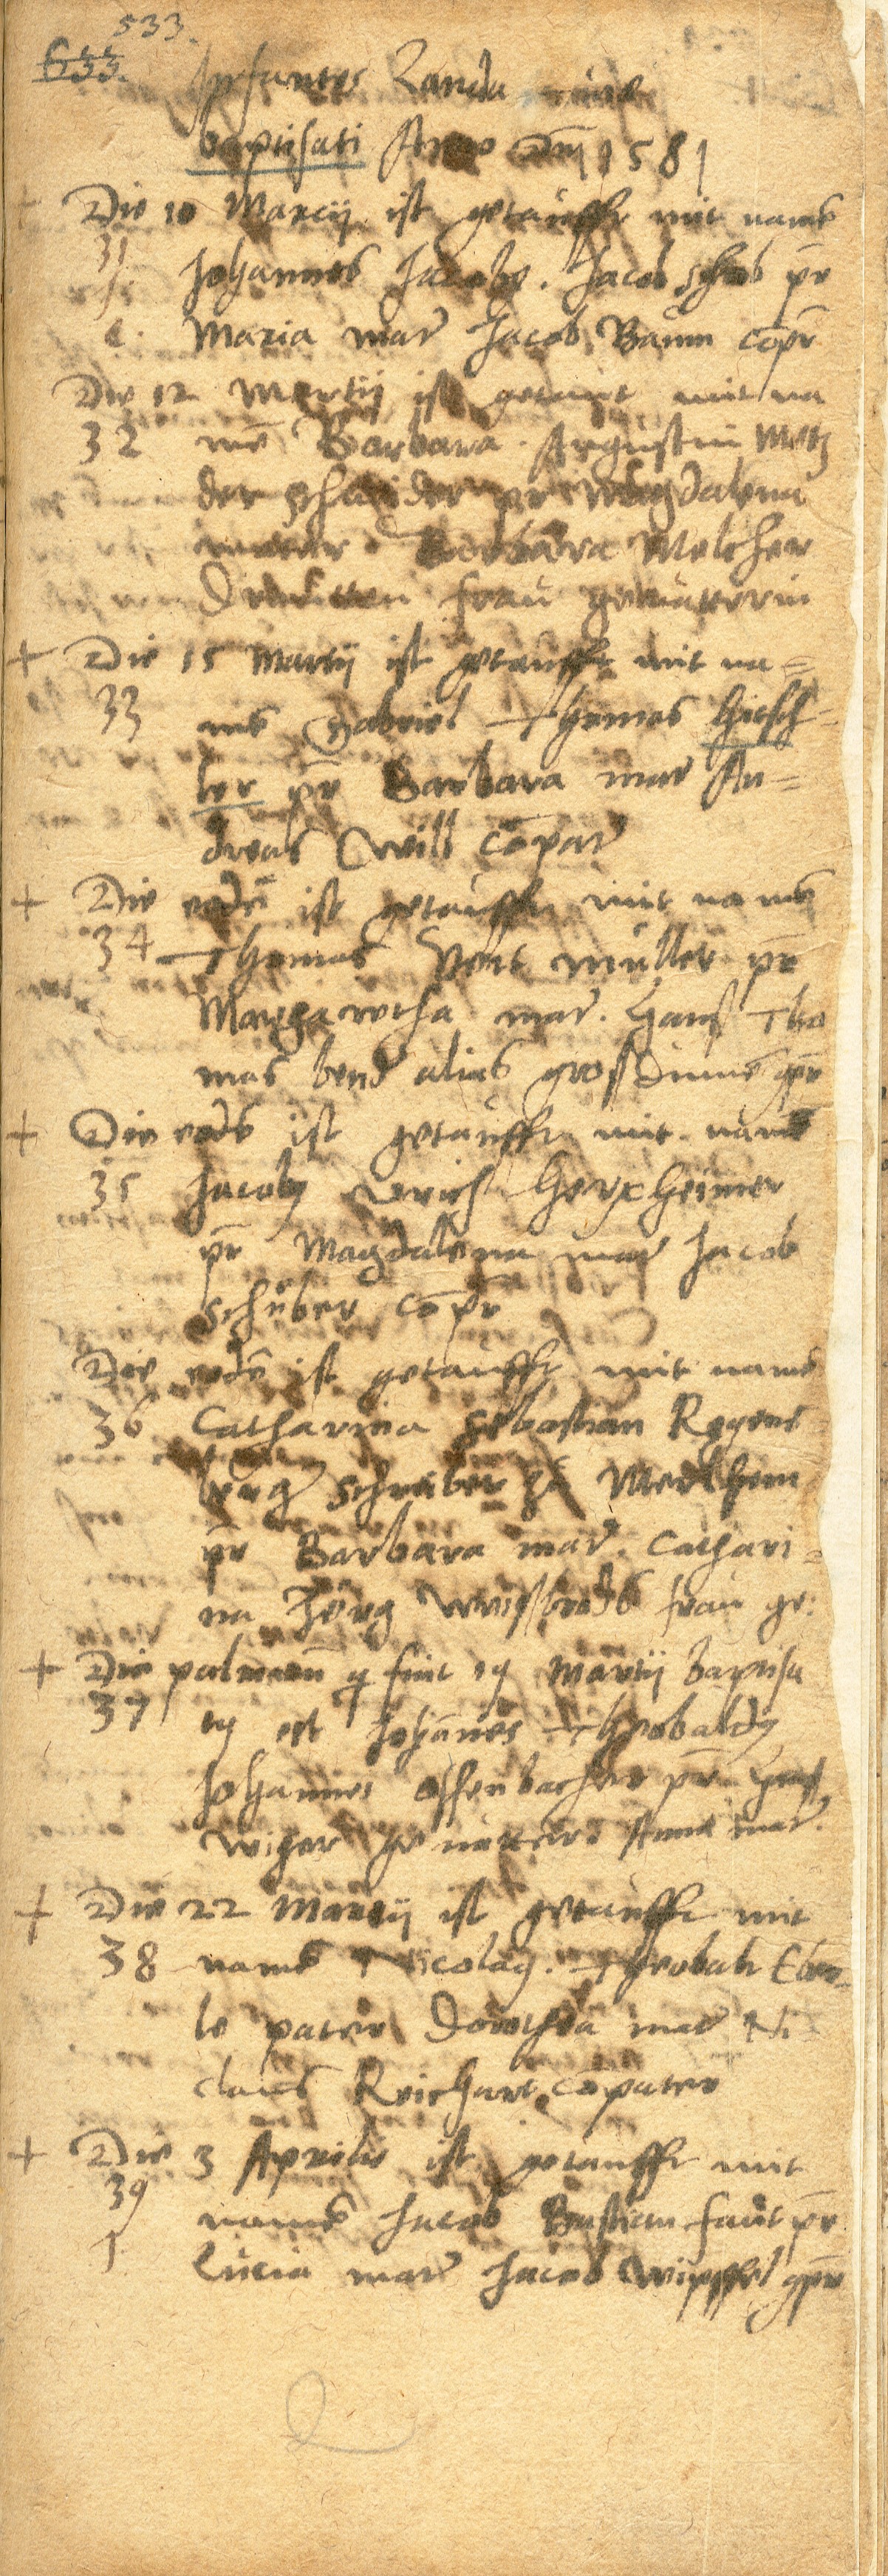 533.
633.
Infantes Landa
baptisati Anno dm̄ 1581
+ Die 10 Marcij ist getaufft mit namē
31 Johannes Jacobs. Jacob schob pr̄
e. Maria mar̄ Jacob Baum cōpr̄
Die 12 Martij ist getauft mit na
32 mē Barbara. Augustin Metz
der schneider pr Magdalena
mater. Barbara Melcher
frau gevatterin
+ Die 15 Martij ist getaufft mit na=
33 mē Gabriel Thomas Hirsch=
ler pr̄ Barbara mar̄ An=
dreas Will cōpar̄
+ Die eodē ist getaufft mit namē
34 Thomas Veit müller pr̄
Margaretha mar̄. Hans Tho
mas bend alias gpr̄
+ Die eodē ist getaufft mit namē
35 Jacoby Herxheimer
pr̄ Magdalena mar̄ Jacob
schuber cōpr̄
Die eodē ist getaufft mit namē
36 Catharina Sebastian Regens
burg schreiber zu
pr̄ Barbara mar̄. Cathari=
na Jörg Weissbrods frau ge:
+ Die palmarū q̨ fuit 19 Martij baptisa
37 ty est Johānes Theobaldy
Johannes Offenbacher pr̄ Hans
Wiger gevatter. Anna mar̄.
+ Die 22 Martij ist getaufft mit
38 namē Nicolaq. Theobalt Eber=
le pater Dorothea mar̄ Ni
claus Reichart cōpater
+ Die 3 Aprilis ist getaufft mit
39 namē Jacob Bastian faut pr̄
1 Lucia mar̄ Jacob Wipffel gpr̄